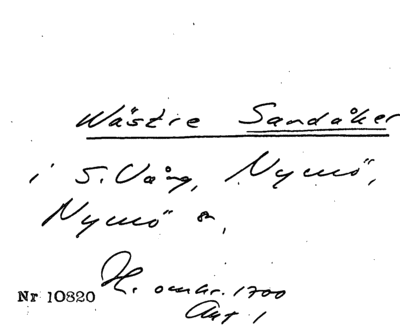 Wästre Sandåker
i S. Vång, Nymö,
Nymö sn,
H. omkr. 1700
Nr 10820 Akt 1